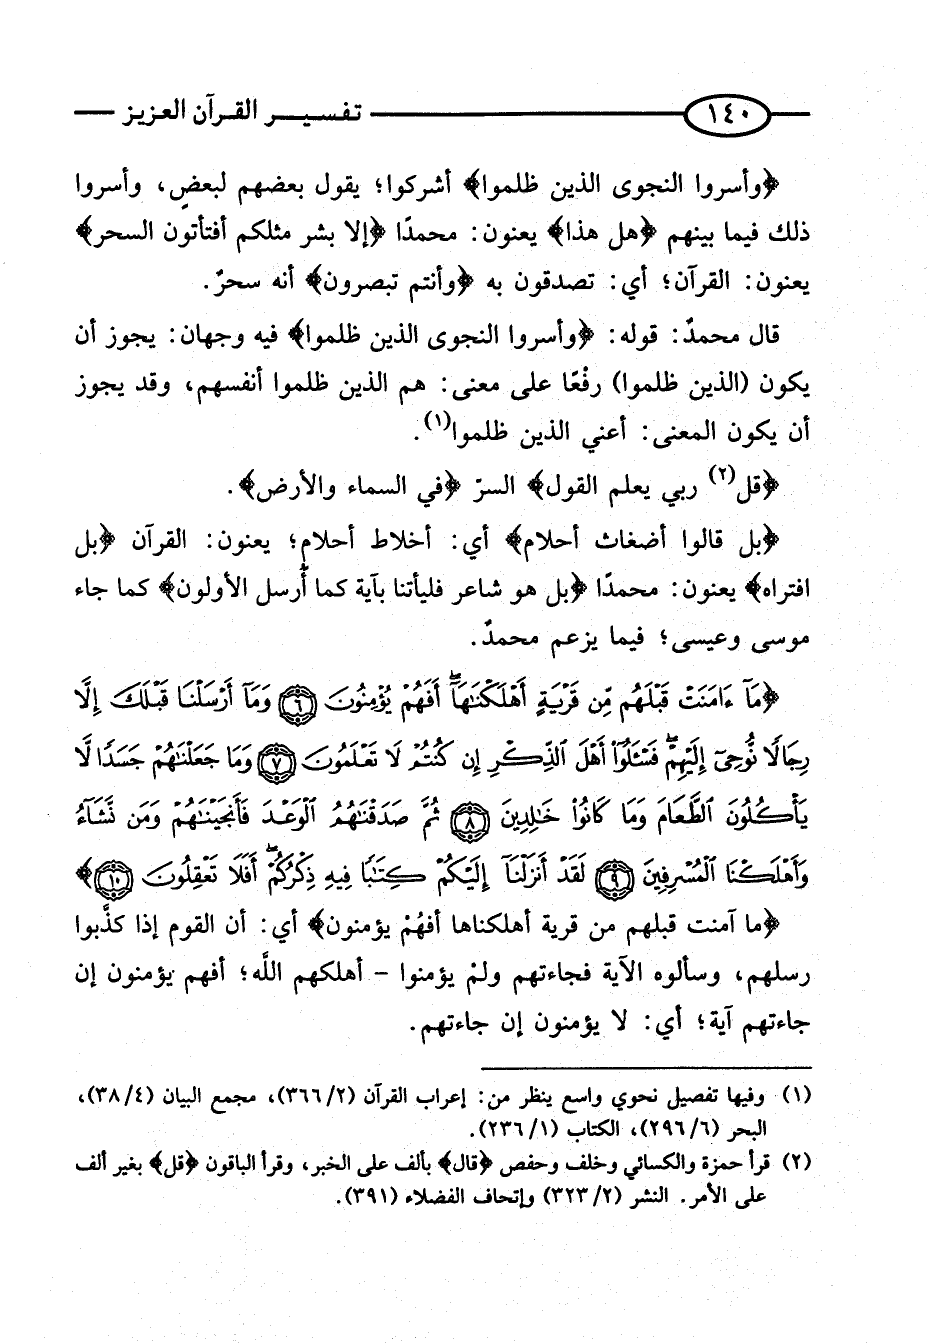 ١٤٠ تفسيـر القـرآن العـزيـز
﴿وأسروا النجوى الذين ظلموا﴾ أشركوا؛ يقول بعضهم لبعضٍ، وأسروا
ذلك فيما بينهم ﴿هل هذا﴾ يعنون: محمدًا ﴿إلا بشر مثلكم أفتأتون السحر﴾
يعنون: القرآن؛ أي: تصدقون به ﴿وأنتم تبصرون﴾ أنه سحرٌ.
قال محمدٌ: قوله: ﴿وأسروا النجوى الذين ظلموا﴾ فيه وجهان: يجوز أن
يكون (الذين ظلموا) رفْعًا على معنى: هم الذين ظلموا أنفسهم، وقد يجوز
أن يكون المعنى: أعني الذين ظلموا(١).
﴿قل(٢) ربي يعلم القول﴾ السرّ ﴿في السماء والأرض﴾.
﴿بل قالوا أضغاث أحلام﴾ أي: أخلاط أحلامٍ؛ يعنون: القرآن ﴿بل
افتراه﴾ يعنون: محمدًا ﴿بل هو شاعر فليأتنا بآية كما أُرسل الأولون﴾ كما جاء
موسى وعيسى؛ فيما يزعم محمدٌ.
﴿مَآ ءَامَنَتْ قَبْلَهُم مِّن قَرْيَةٍ أَهْلَكْنَٰهَآ ۖ أَفَهُمْ يُؤْمِنُونَ ۝٦ وَمَآ أَرْسَلْنَا قَبْلَكَ إِلَّا
رِجَالًا نُّوحِىٓ إِلَيْهِمْ ۖ فَسْـَٔلُوٓا۟ أَهْلَ ٱلذِّكْرِ إِن كُنتُمْ لَا تَعْلَمُونَ ۝٧ وَمَا جَعَلْنَٰهُمْ جَسَدًا لَّا
يَأْكُلُونَ ٱلطَّعَامَ وَمَا كَانُوا۟ خَٰلِدِينَ ۝٨ ثُمَّ صَدَقْنَٰهُمُ ٱلْوَعْدَ فَأَنجَيْنَٰهُمْ وَمَن نَّشَآءُ
وَأَهْلَكْنَا ٱلْمُسْرِفِينَ ۝٩ لَقَدْ أَنزَلْنَآ إِلَيْكُمْ كِتَٰبًا فِيهِ ذِكْرُكُمْ ۖ أَفَلَا تَعْقِلُونَ ۝١٠﴾
﴿ما آمنت قبلهم من قرية أهلكناها أفهُمْ يؤمنون﴾ أي: أن القوم إذا كذَّبوا
رسلهم، وسألوه الآية فجاءتهم ولمْ يؤمنوا - أهلكهم اللَّه؛ أفهم يؤمنون إن
جاءتهم آية؛ أي: لا يؤمنون إن جاءتهم.
(١) وفيها تفصيل نحوي واسع ينظر من: إعراب القرآن (٣٦٦/٢)، مجمع البيان (٣٨/٤)،
البحر (٢٩٦/٦)، الكتاب (٢٣٦/١).
(٢) قرأ حمزة والكسائي وخلف وحفص ﴿قال﴾ بألف على الخبر، وقرأ الباقون ﴿قل﴾ بغير ألف
على الأمر. النشر (٣٢٣/٢) وإتحاف الفضلاء (٣٩١).